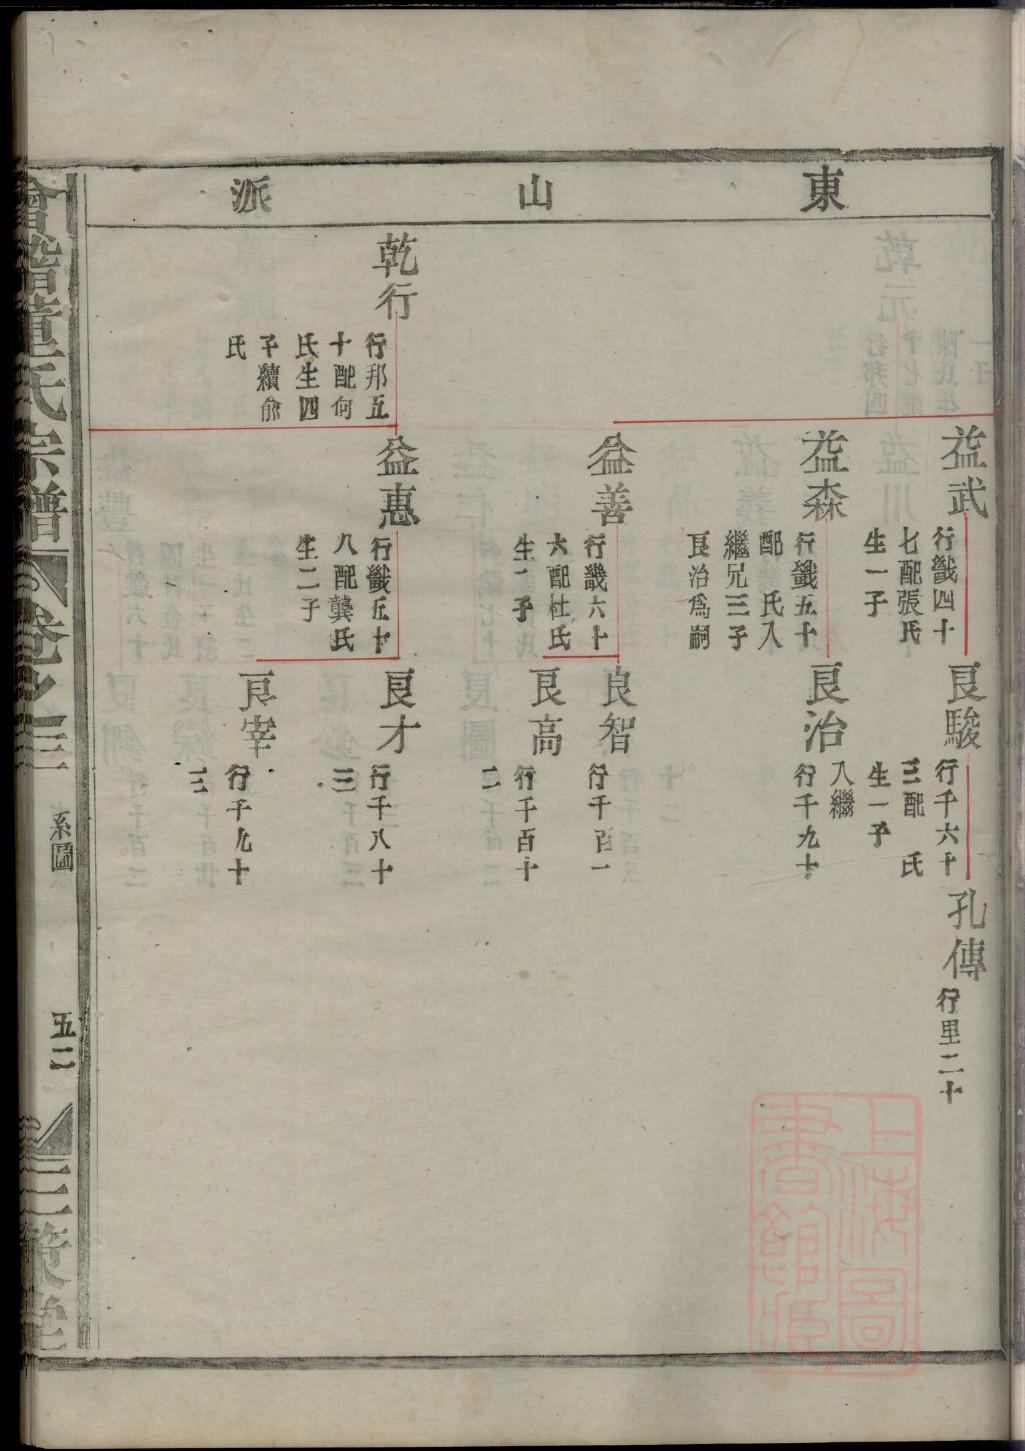 東山派
益武
行㦸四十
七配張氏
生一子
良駿
行千六十
三配　氏
生一子
孔傳
行里二十
益森
行㦸五十
配　氏入
繼兄三子
良治爲嗣
良治
入繼
行千九十
益善
行㦸六十
六配杜氏
生二子
良智
行千百一
良高
行千百十
二
乾行
行邦五
十配何
氏生四
子續俞
氏
益惠
行㦸五十
八配龔氏
生二子
良才
行千八十
三
良宰
行千九十
三
會稽董氏宗譜
卷之三
系圖
五二
三策堂
上海圖書館藏